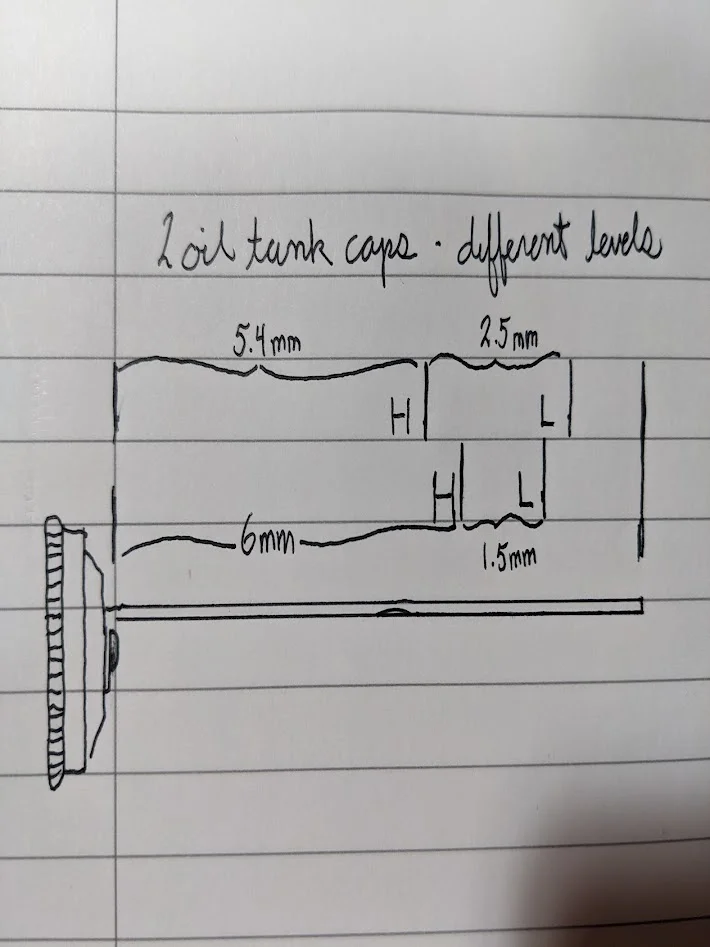 2 oil tank caps · different levels
5.4mm 2.5mm
H L
H L
6mm 1.5mm